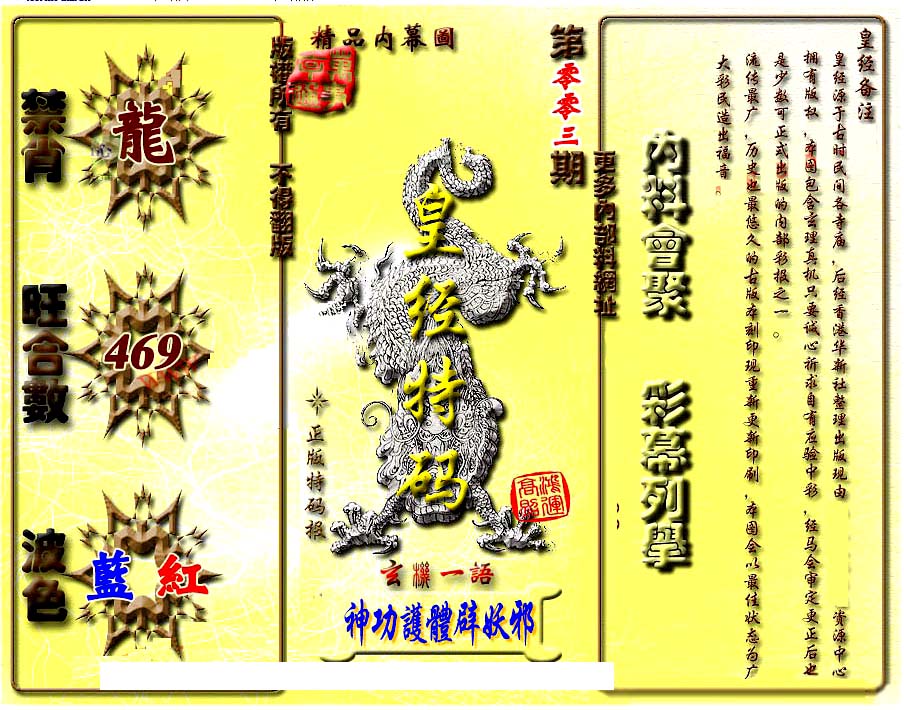 皇经备注
皇经源于古时民间各寺庙,后经香港华新社整理出版现由 资源中心
拥有版权,本图包含玄理真机只要诚心祈求自有应验中彩,经马会审定更正后也
是少数可正式出版的内部彩报之一。
流传最广,历史也最悠久的古版本刻印现重新更新印刷,本图会以最佳状态为广
大彩民造出福音
內料會聚
彩幕列舉
更多內部料網址
第零零三期
精品内幕圖
皇经特码
正版特码报
鴻運高照
玄機一語
神功護體辟妖邪
版權所有 不得翻版
禁肖
龍
旺合數
469
波色
藍 紅